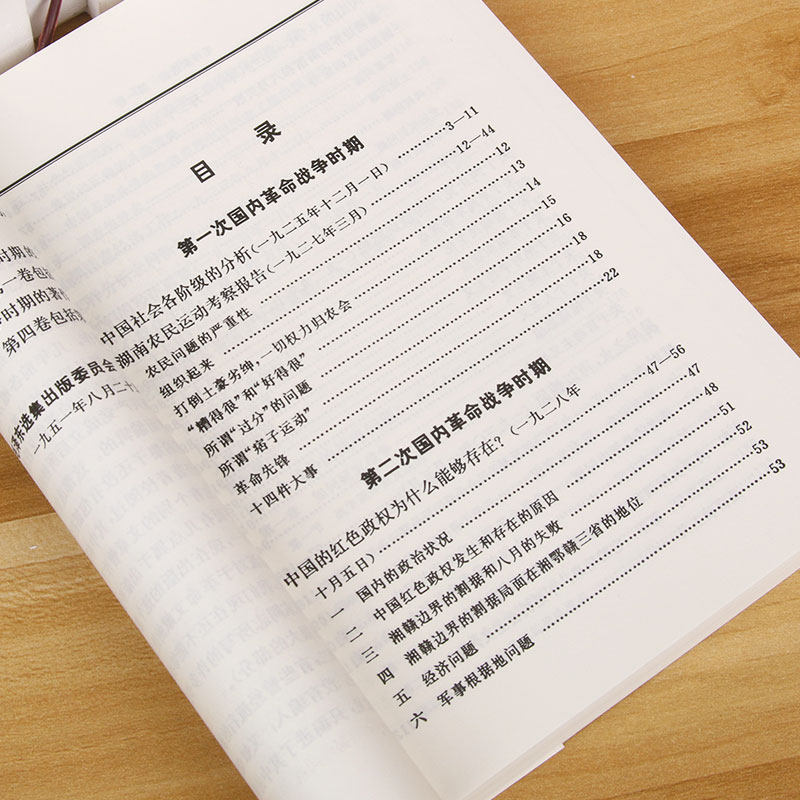 时期的
一卷包括
时期的著作
第四卷包括
东选集出版委员会
一九五一年八月二十
目 录
第一次国内革命战争时期
中国社会各阶级的分析(一九二五年十二月一日) ………3—11
湖南农民运动考察报告(一九二七年三月) ………12—44
农民问题的严重性 ………12
组织起来 ………13
打倒土豪劣绅,一切权力归农会 ………14
“糟得很”和“好得很” ………15
所谓“过分”的问题 ………16
所谓“痞子运动” ………18
革命先锋 ………18
十四件大事 ………22
第二次国内革命战争时期
中国的红色政权为什么能够存在?(一九二八年
十月五日) ………47—56
一 国内的政治状况 ………47
二 中国红色政权发生和存在的原因 ………48
三 湘赣边界的割据和八月的失败 ………51
四 湘赣边界的割据局面在湘鄂赣三省的地位 ………52
五 经济问题 ………53
六 军事根据地问题 ………53